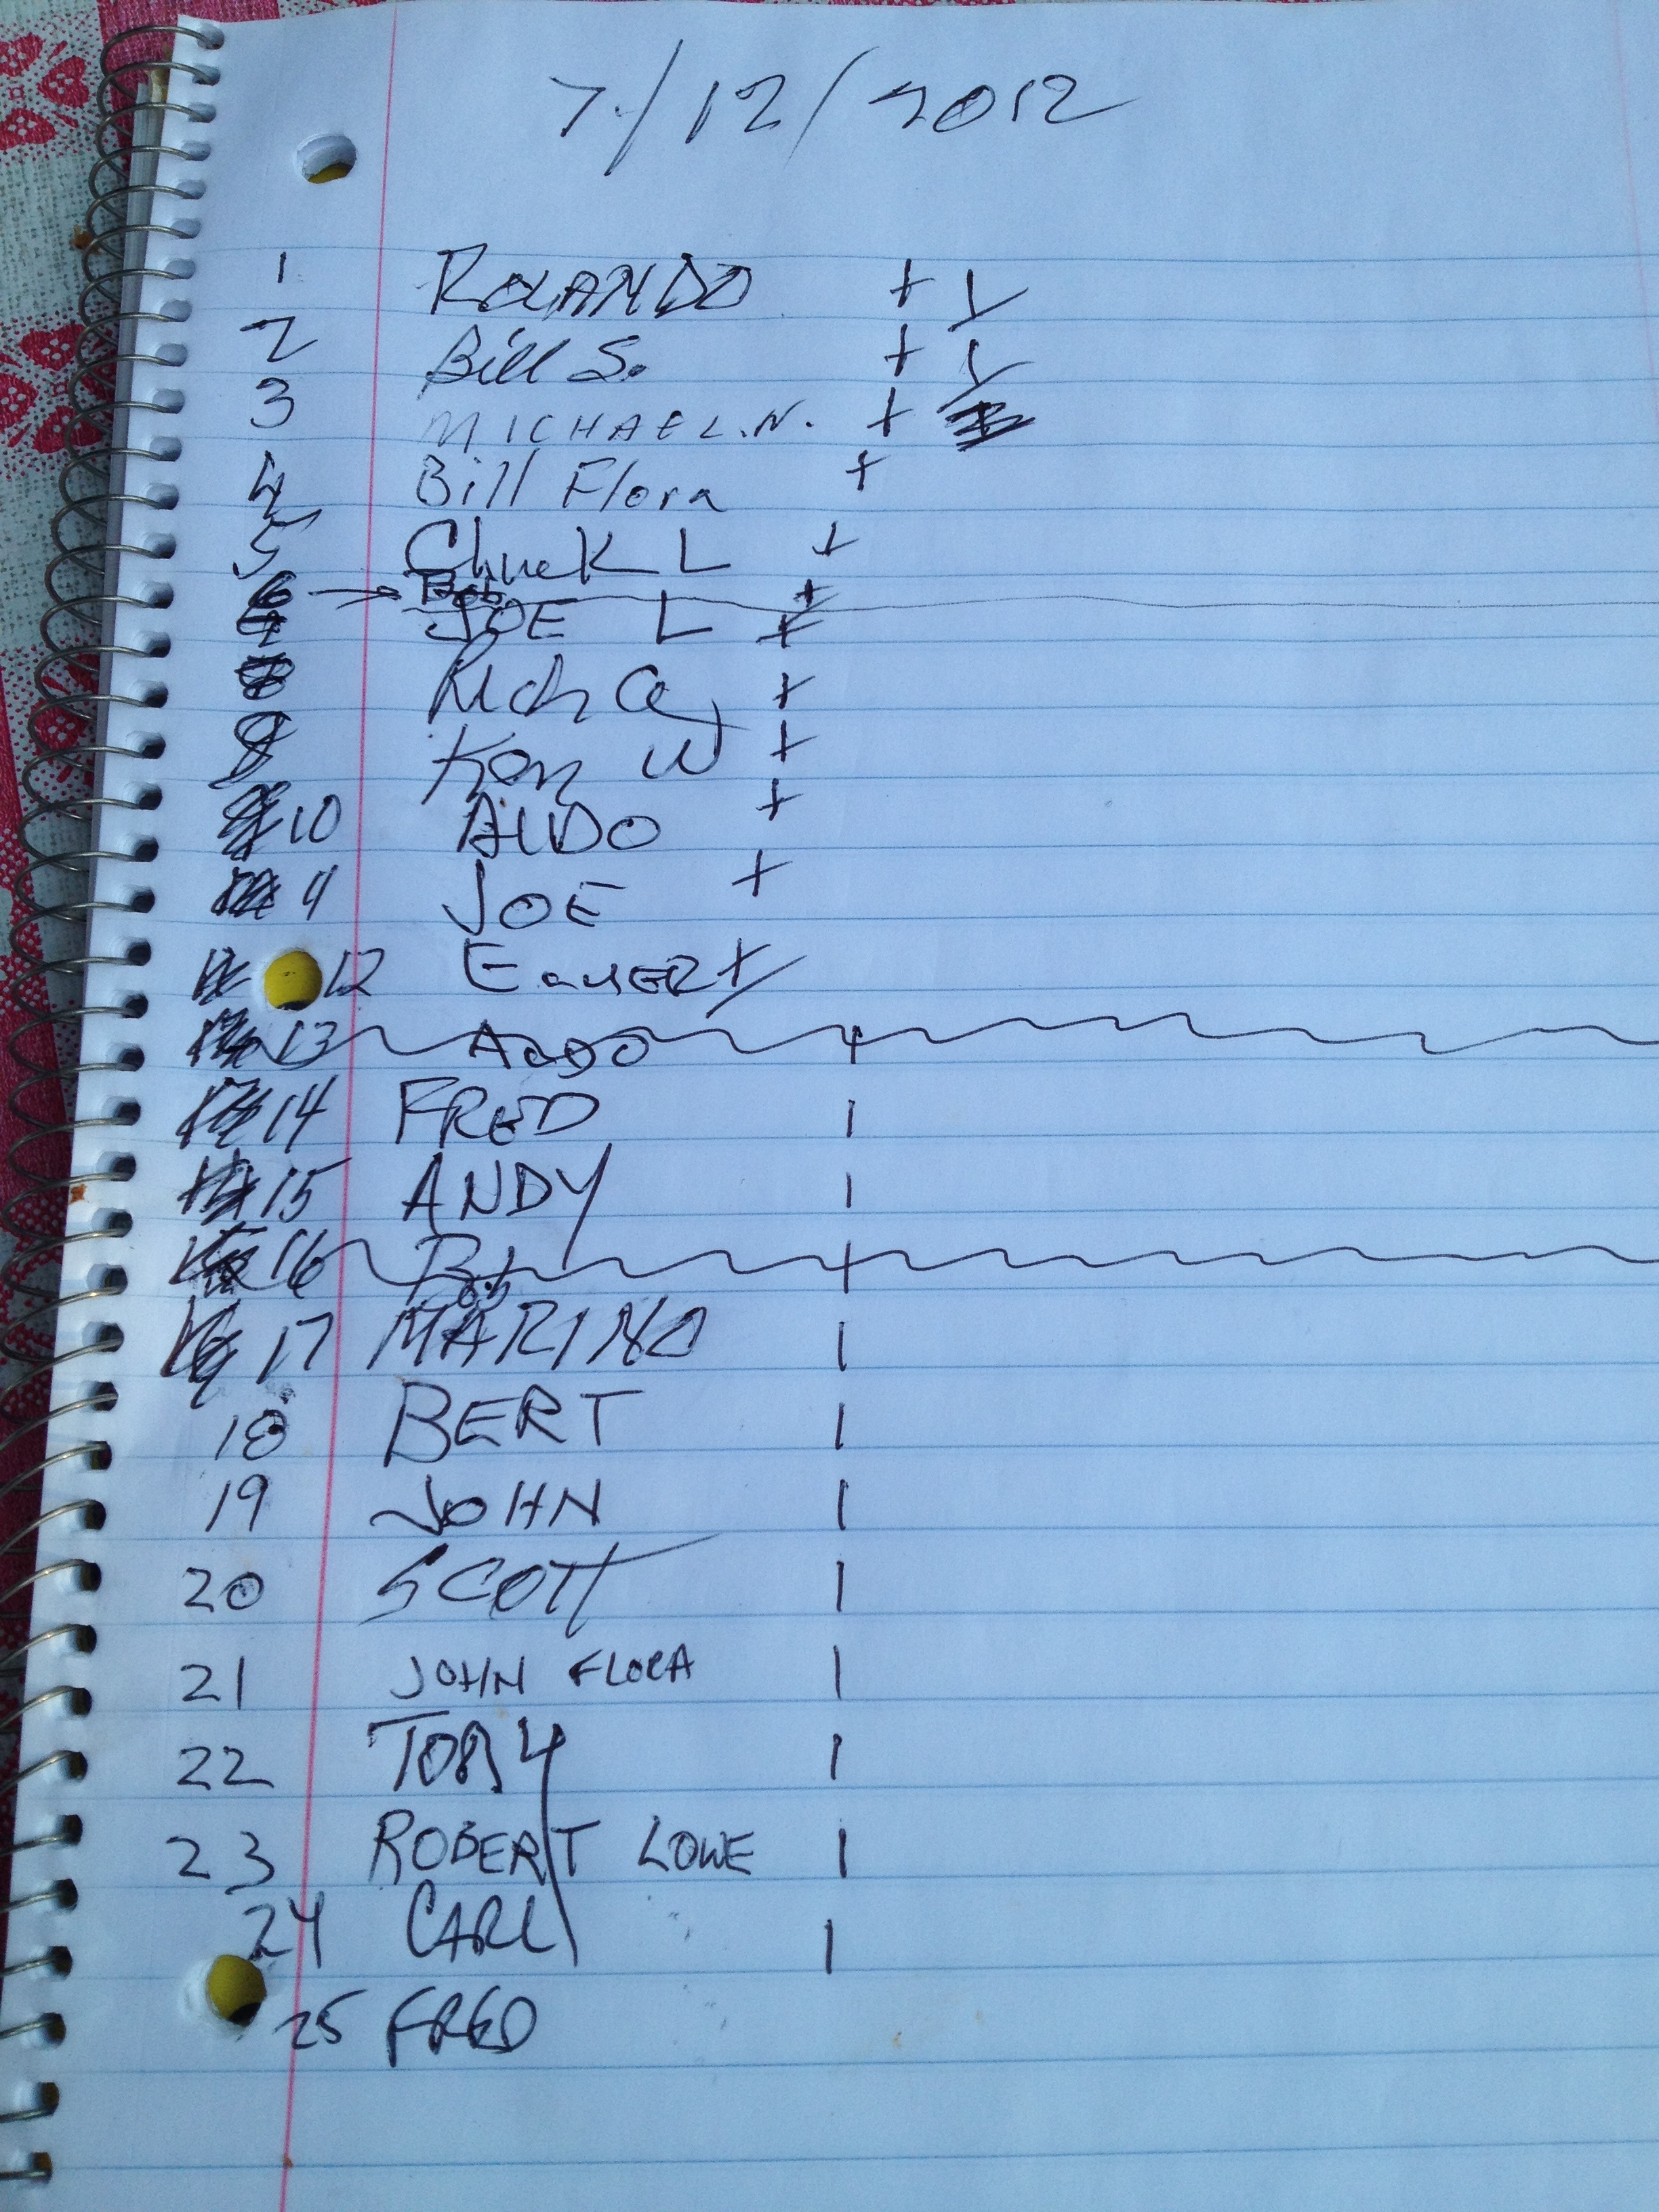 7/12/2012
1 ROLANDO + \/
2 Bill S. + \/
3 MICHAEL.N. +
4 Bill Flora +
5 Chuck L +
6 → Bob +
JOE L +
Rich +
8 Ken W +
10 ALDO +
11 JOE +
12
13 ALDO +
14 FRED |
15 ANDY |
16 Bob +
17 MARINO |
18 BERT |
19 JOHN |
20 SCOTT |
21 JOHN FLORA |
22 |
23 ROBERT LOWE |
24 CARL |
25 FRED